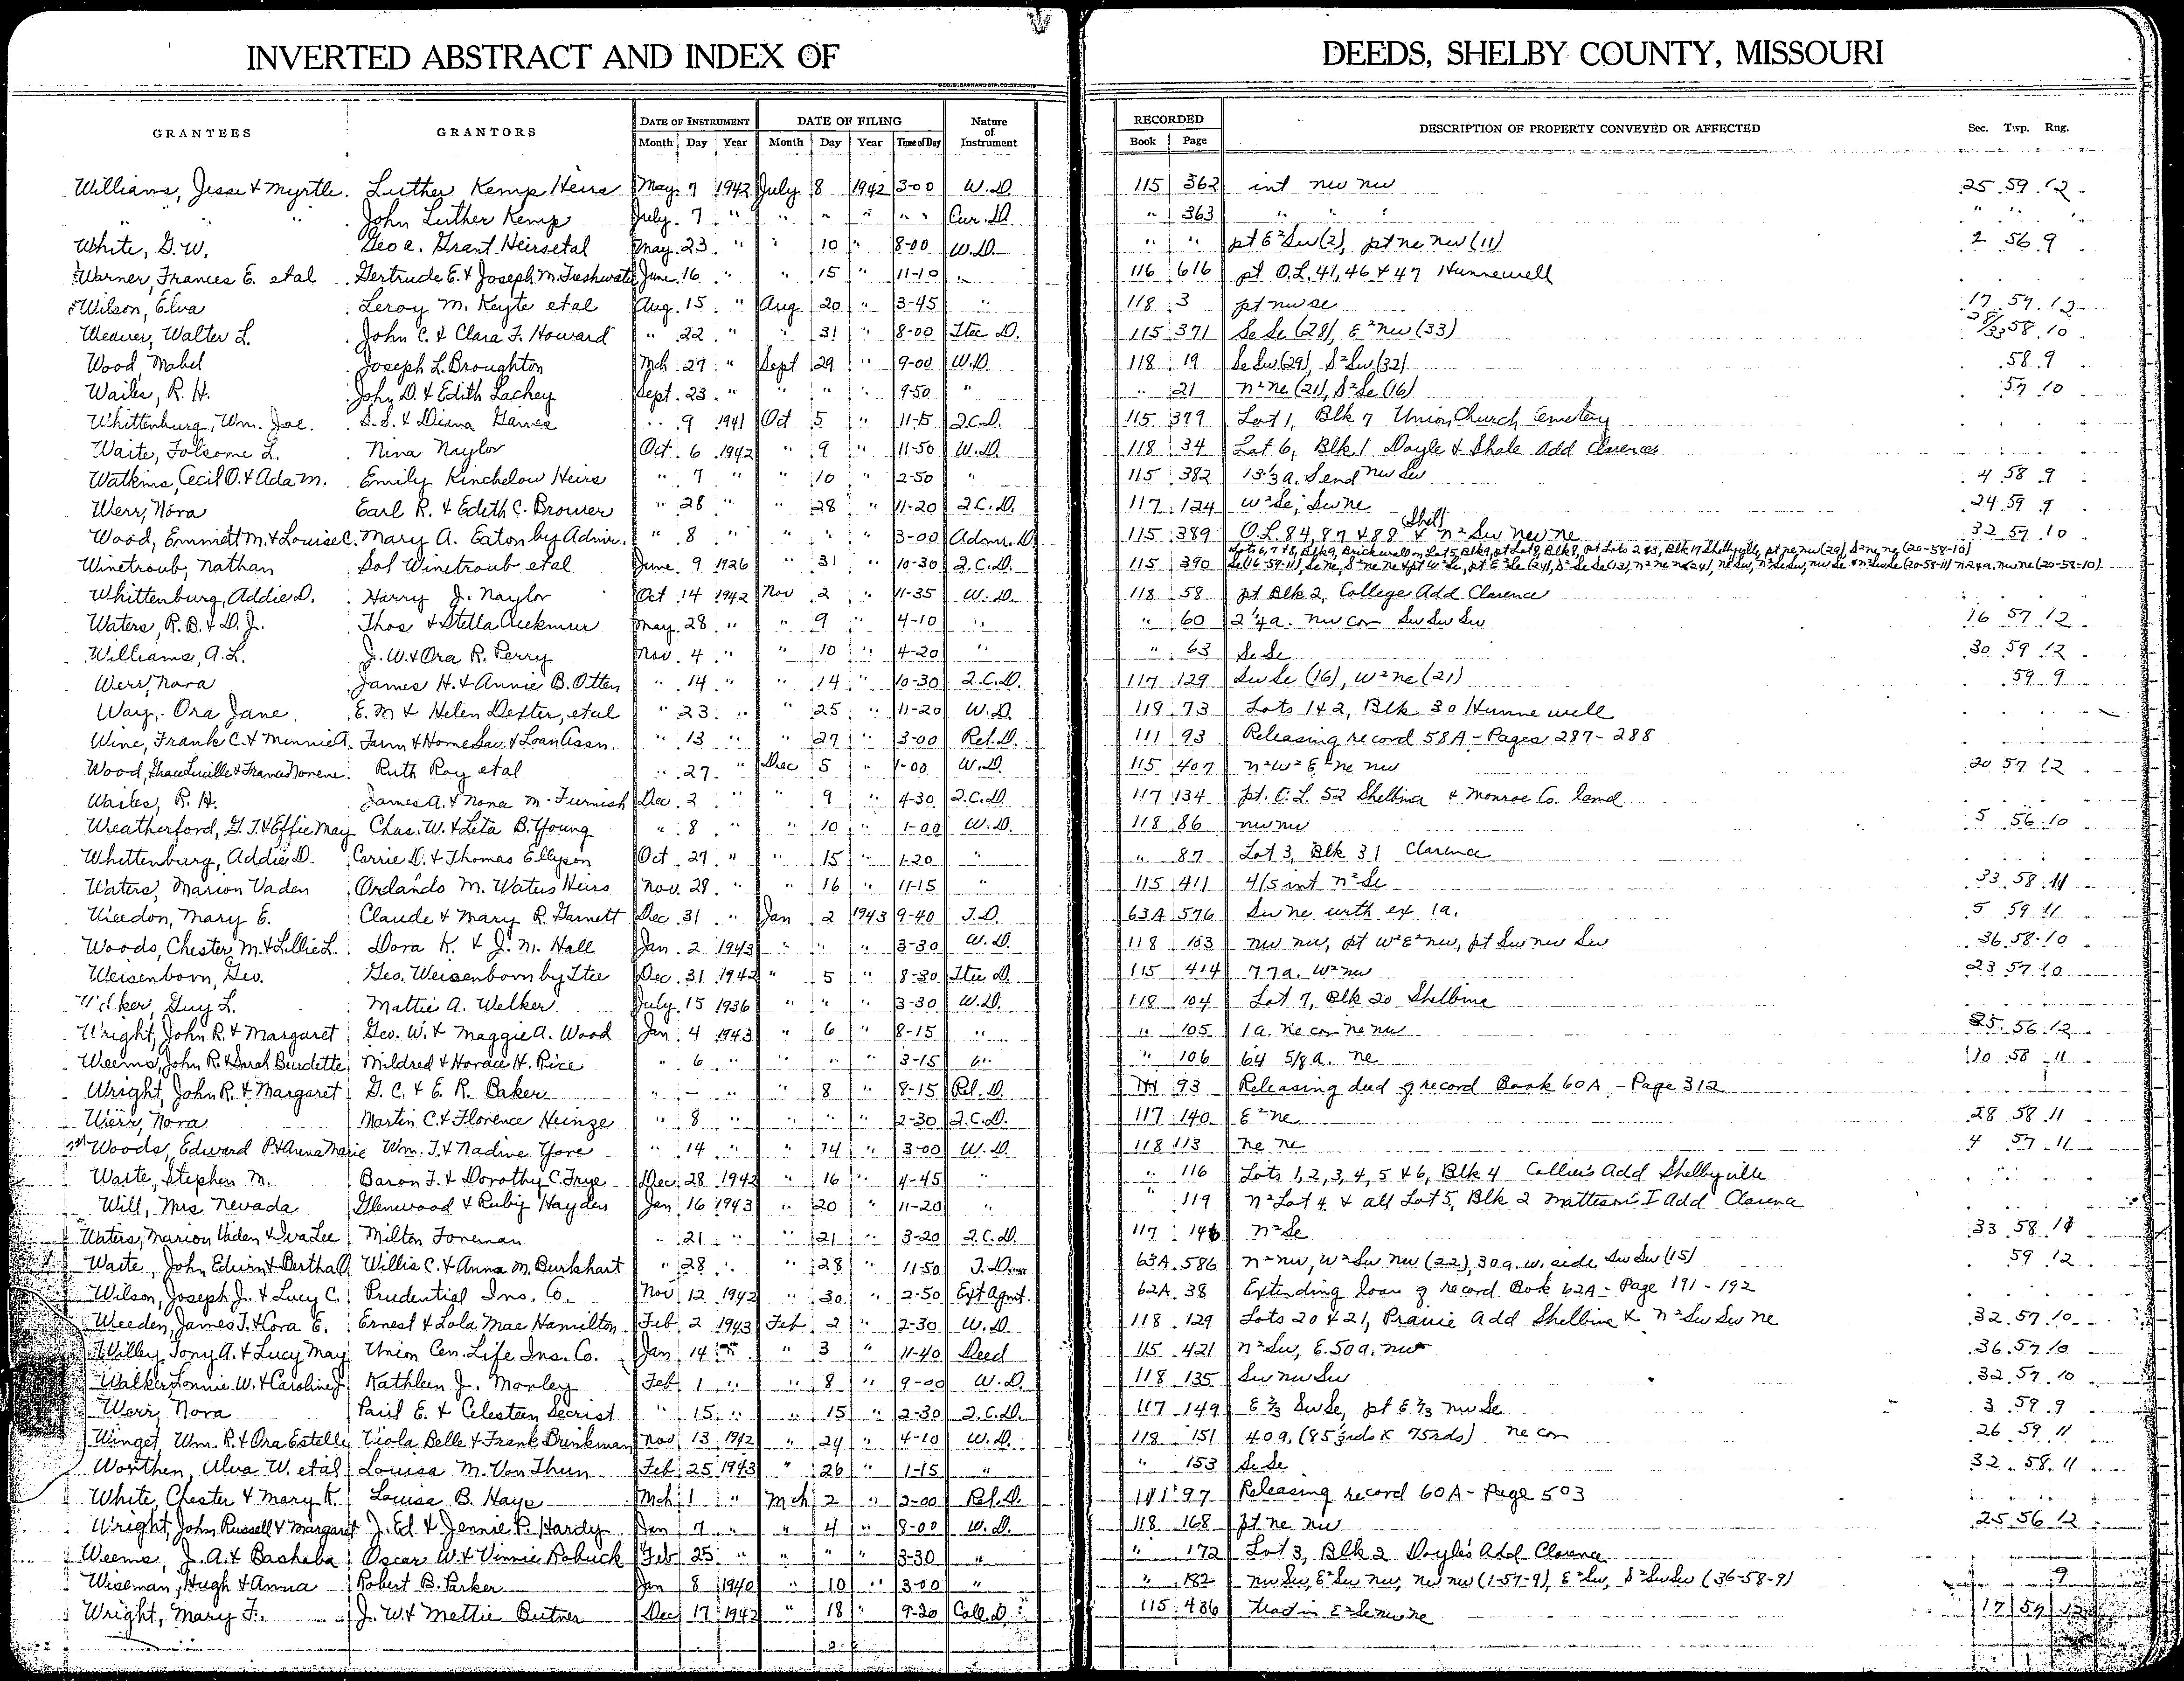 INVERTED ABSTRACT AND INDEX OF DEEDS, SHELBY COUNTY, MISSOURI
GEO. D. BARNARD STA. CO. ST. LOUIS
GRANTEES GRANTORS DATE OF INSTRUMENT DATE OF FILING Nature of Instrument RECORDED DESCRIPTION OF PROPERTY CONVEYED OR AFFECTED Sec. Twp. Rng.
Month Day Year Month Day Year Time of Day Book Page
Williams, Jesse & Myrtle. Luther Kemp Heirs May 7 1942 July 8 1942 3-00 W.D. 115 362 int nw nw 25 59 12
" " " John Luther Kemp July 7 " " " " " " Cur. D. " 363 " " " " " "
White, G.W. Geo a. Grant Heirs etal May 23 " " 10 " 8-00 W.D. " " pt E²Sw(2), pt ne nw (11) 2 56 9
Warner, Frances E. etal Gertrude E. & Joseph M. Freshwater June 16 " " 15 " 11-10 " 116 616 pt O.L. 41, 46 & 47 Hunnewell
Wilson, Elva Leroy M. Keyte etal Aug. 15 " Aug 20 " 3-45 " 118 3 pt nw se 17 57 12
Weaver, Walter L. John C. & Clara F. Howard " 22 " " 31 " 8-00 Stee D. 115 371 Se Se (28), E²nw (33) 28/33 58 10
Wood Mabel Joseph L. Broughton Mch 27 " Sept 29 " 9-00 W.D. 118 19 Se Sw (29), S²Sw (32) 58 9
Wailes, R. H. John D. & Edith Lachey Sept. 23 " " " " 9-50 " " 21 n²ne (21), S²Se (16) 57 10
Whittenburg, Wm. Joe. S.S. & Diana Gaines " 9 1941 Oct 5 " 11-15 Q.C.D. 115 379 Lot 1, Blk 7 Union Church Cemetery
Waite, Folsome L. Nina Naylor Oct. 6 1942 " 9 " 11-50 W.D. 118 34 Lot 6, Blk 1 Doyle & Shale Add Clarence
Watkins, Cecil O. & Ada M. Emily Kinchelow Heirs " 7 " " 10 " 2-50 " 115 382 13⅓a. S end nw Sw 4 58 9
Werr, Nora Earl R. & Edith C. Brower " 28 " " 28 " 11-20 Q.C.D. 117 124 W²Se, Sw ne 24 59 9
Wood, Emmett M. & Louise C. Mary A. Eaton by Admr. " 8 " " " " 3-00 Admr. D. 115 389 O.L. 84, 87 & 88 (Shel) & n²Sw nw ne 32 57 10
Winetroub, Nathan Sol Winetroub etal June 9 1926 " 31 " 10-30 Q.C.D. 115 390
Whittenburg, Addie D. Harry J. Naylor Oct 14 1942 Nov 2 " 11-35 W.D. 118 58 pt Blk 2, College Add Clarence
Waters, R.B. & D.J. Thos & Stella May 28 " " 9 " 4-10 " " 60 2¼a. nw cor Sw Sw Sw 16 57 12
Williams, A.L. J.W. & Ora R. Perry Nov. 4 " " 10 " 4-20 " " 63 Se Se 30 59 12
Werr, Nora James H. & Annie B. Otten " 14 " " 14 " 10-30 Q.C.D. 117 129 Sw Se (16), W²ne (21) 59 9
Way, Ora Jane E.M. & Helen Dexter, etal " 23 " " 25 " 11-20 W.D. 118 73 Lots 1 & 2, Blk 30 Hunnewell
Wine, Frank C. & Minnie A. Farm & Home Sav. & Loan Assn. " 13 " " 27 " 3-00 Rel. D. 111 93 Releasing record 58A - Pages 287-288
Wood, Grace Lucille & Frances Norene Ruth Ray etal " 27 " Dec 5 " 1-00 W.D. 115 407 n²W²E²ne nw 20 57 12
Wailes, R. H. James A. & Nona M. Furnish Dec. 2 " " 9 " 4-30 Q.C.D. 117 134 pt. O.L. 52 Shelbina & Monroe Co. land
Weatherford, G.T. & Effie May Chas. W. & Leta B. Young " 8 " " 10 " 1-00 W.D. 118 86 nw nw 5 56 10
Whittenburg, Addie D. Carrie D. & Thomas Ellyson Oct. 27 " " 15 " 1-20 " " 87 Lot 3, Blk 31 Clarence
Waters, Marion Vaden Orlando M. Waters Heirs Nov. 28 " " 16 " 11-15 " 115 411 4/5 int n²Se 33 58 11
Weedon, Mary E. Claude & Mary R. Garnett Dec. 31 " Jan 2 1943 9-40 T.D. 63A 576 Sw ne with ex 1a. 5 59 11
Woods, Chester M. & Lillie L. Dora K. & J.M. Hall Jan. 2 1943 " " " 3-30 W.D. 118 103 nw nw, pt W²E²nw, pt Sw nw Sw 36 58 10
Weisenborn, Geo. Geo. Weisenborn by Stee Dec. 31 1942 " 5 " 8-30 Stee D. 115 414 77a. W²nw 23 57 10
Welker, Guy L. Mattie A. Welker July 15 1936 " " " 3-30 W.D. 118 104 Lot 7, Blk 20 Shelbina
Wright, John R. & Margaret Geo. W. & Maggie A. Wood Jan. 4 1943 " 6 " 8-15 " " 105 1a. ne cor ne nw 25 56 12
Weems, John R. & Sarah Burdette Mildred & Horace H. Rice " 6 " " " " 3-15 " " 106 64 5/8a. ne 10 58 11
Wright, John R. & Margaret G.C. & E.R. Baker " - " " 8 " 8-15 Rel. D. 111 93 Releasing deed of record Book 60A - Page 312
Werr, Nora Martin C. & Florence Heinze " 8 " " " " 2-30 Q.C.D. 117 140 E²ne 28 58 11
Woods, Edward P. & Anna Marie Wm. T. & Nadine Yore " 14 " " 14 " 3-00 W.D. 118 113 ne ne 4 57 11
Waite, Stephen M. Baron F. & Dorothy C. Frye Dec. 28 1942 " 16 " 4-45 " " 116 Lots 1, 2, 3, 4, 5 & 6, Blk 4 Collier's Add Shelbyville
Will, Mrs Nevada Glenwood & Ruby Hayden Jan 16 1943 " 20 " 11-20 " " 119 n²Lot 4 & all Lot 5, Blk 2 Matteson's I Add Clarence
Waters, Marion Vaden & Iva Lee Milton Foreman " 21 " " 21 " 3-20 Q.C.D. 117 146 n²Se 33 58 11
Waite, John Edwin & Bertha O. Willis C. & Anna M. Burkhart " 28 " " 28 " 11-50 T.D. 63A 586 n²nw, W²Sw nw (22), 30a. w. side Sw Sw (15) 59 12
Wilson, Joseph J. & Lucy C. Prudential Ins. Co. Nov 12 1942 " 30 " 2-50 Ext Agmt. 62A 38 Extending loan of record Book 62A - Page 191-192
Weeden, James T. & Cora E. Ernest & Lola Mae Hamilton Feb. 2 1943 Feb 2 " 2-30 W.D. 118 129 Lots 20 & 21, Prairie Add Shelbina & n²Sw Sw ne 32 57 10
Willey, Tony A. & Lucy May Union Cen. Life Ins. Co. Jan 14 " " 3 " 11-40 Deed 115 421 n²Sw, E. 50a. nw 36 57 10
Walker, Lonnie W. & Caroline J. Kathleen J. Morley Feb 1 " " 8 " 9-00 W.D. 118 135 Sw nw Sw 32 57 10
Werr, Nora Paul E. & Celesteen Secrist " 15 " " 15 " 2-30 Q.C.D. 117 149 E⅔ Sw Se, pt E⅔ nw Se 3 59 9
Winget, Wm. R. & Ora Estelle Viola Belle & Frank Brinkman Nov 13 1942 " 24 " 4-10 W.D. 118 151 40a. (85⅓rds X 75rds) ne cor 26 59 11
Worthen, Alva W. etal Louisa M. Von Thun Feb 25 1943 " 26 " 1-15 " " 153 Se Se 32 58 11
White, Chester & Mary K. Louisa B. Hays Mch 1 " Mch 2 " 2-00 Rel. D. 111 97 Releasing record 60A - Page 503
Wright, John Russell & Margaret J. Ed & Jennie P. Hardy Jan 7 " " 4 " 8-00 W.D. 118 168 pt ne nw 25 56 12
Weems, J.A. & Basheba Oscar W. & Vinnie Robuck Feb 25 " " " " 3-30 " " 172 Lot 3, Blk 2 Doyle's Add Clarence
Wiseman, Hugh & Anna Robert B. Parker Jan 8 1940 " 10 " 3-00 " " 182 nw Sw, E²Sw nw, ne nw (1-57-9), E²Sw, S²Sw Sw (36-58-9) 9
Wright, Mary F. J.W. & Mettie Butner Dec 17 1942 " 18 " 9-20 Coll. D. 115 486 tract in E²Se nw ne 17 57